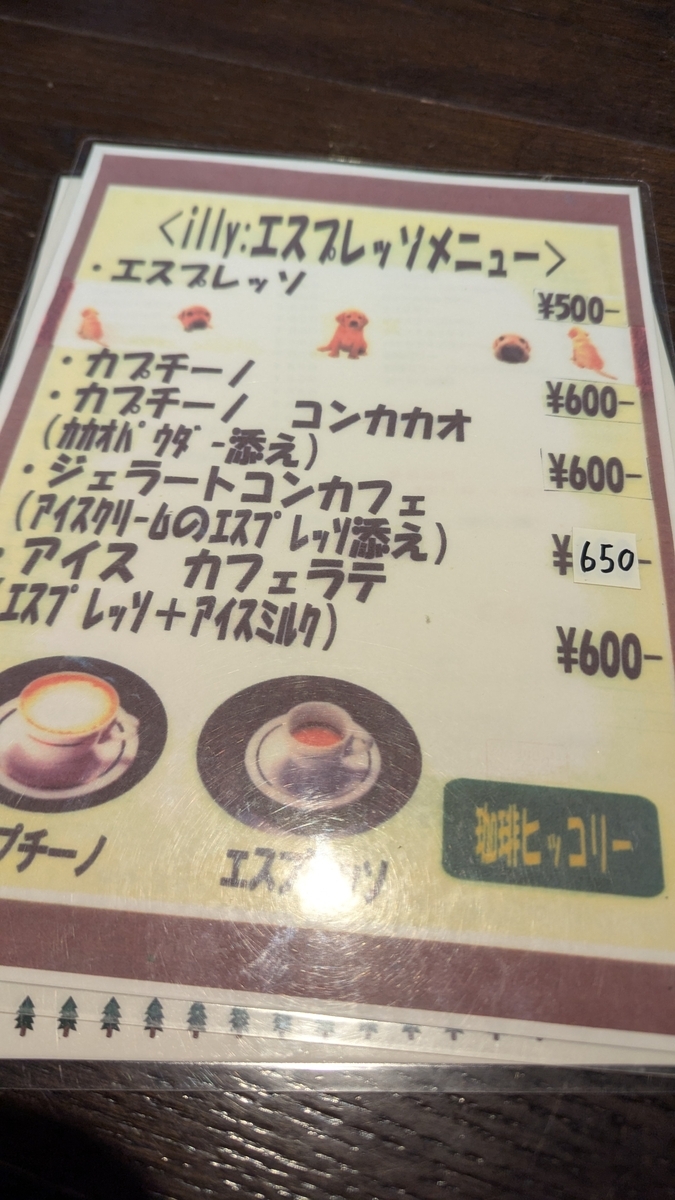 <illy:エスプレッソメニュー>
・エスプレッソ ¥500-
・カプチーノ ¥600-
・カプチーノ コンカカオ
(ｶｶｵﾊﾟｳﾀﾞｰ添え) ¥600-
・ジェラートコンカフェ
(ｱｲｽｸﾘｰﾑのｴｽﾌﾟﾚｯｿ添え) ¥650-
・アイス カフェラテ
ｴｽﾌﾟﾚｯｿ＋ｱｲｽﾐﾙｸ) ¥600-
プチーノ
エスプレッソ
珈琲ヒッコリー